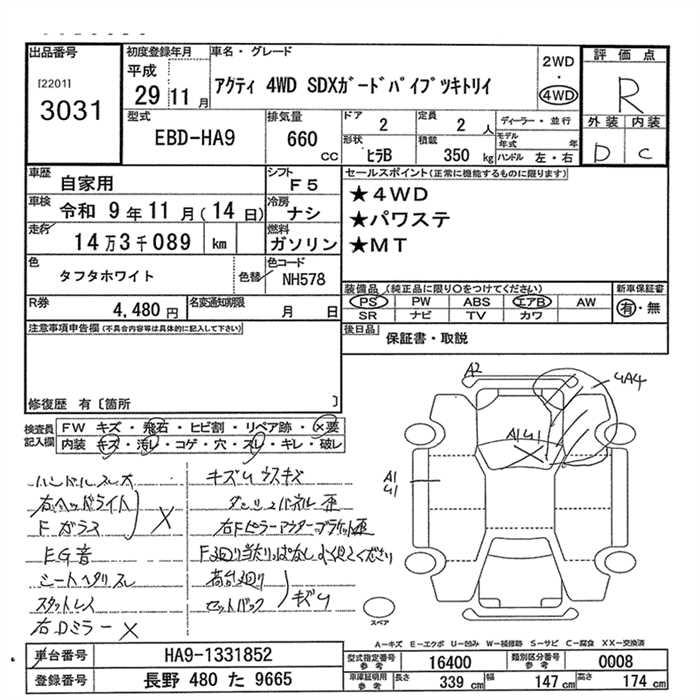 出品番号
[2201]
3031
初度登録年月
平成
29 11 月
車名・グレード
アクティ 4WD SDXガードパイプツキトリイ
2WD
・
4WD
評価点
R
外装 内装
D C
型式
EBD-HA9
排気量
660
CC
ドア
2
定員
2 人
形状
ヒラB
積載
350 kg
ディーラー・並行
モデル
年式 年
ハンドル 左・右
車歴
自家用
シフト
F5
車検
令和 9年 11月(14日)
冷房
ナシ
走行
14万3千089 km
燃料
ガソリン
色
タフタホワイト
色替
色コード
NH578
R券
4,480 円
名変通知期限
月 日
セールスポイント(正常に機能するものに限ります)
★4WD
★パワステ
★MT
装備品 (純正品に限り○をつけてください)
PS PW ABS エアB AW
SR ナビ TV カワ
新車保証書
有・無
後日品
保証書・取説
注意事項申告欄(不具合内容等は具体的に記入して下さい)
修復歴 有〔箇所 〕
検査員
記入欄
FW キズ・飛石・ヒビ割・リペア跡・×要
内装 キズ・汚レ・コゲ・穴・スレ・キレ・破レ
ハンドルスレ大
右ヘッドライト
Fガラス
×
EG音
シートヘタリスレ
スタットレス
右Dミラー×
キズUウスキズ
ダッシュパネル歪
右Fピラーアウターブラケット歪
F廻り当たりっぱなし よく見てください
荷台廻り
セットバック
キズU
A2
4A4
A1U1
A1
U1
スペア
A-キズ E-エクボ U-凹み W-補修跡 S-サビ C-腐食 XX-交換済
車台番号
HA9-1331852
登録番号
長野 480 た 9665
型式指定番号
参考
16400
類別区分番号
参考
0008
車庫証明用
参考
長さ
339 cm
幅
147 cm
高さ
174 cm